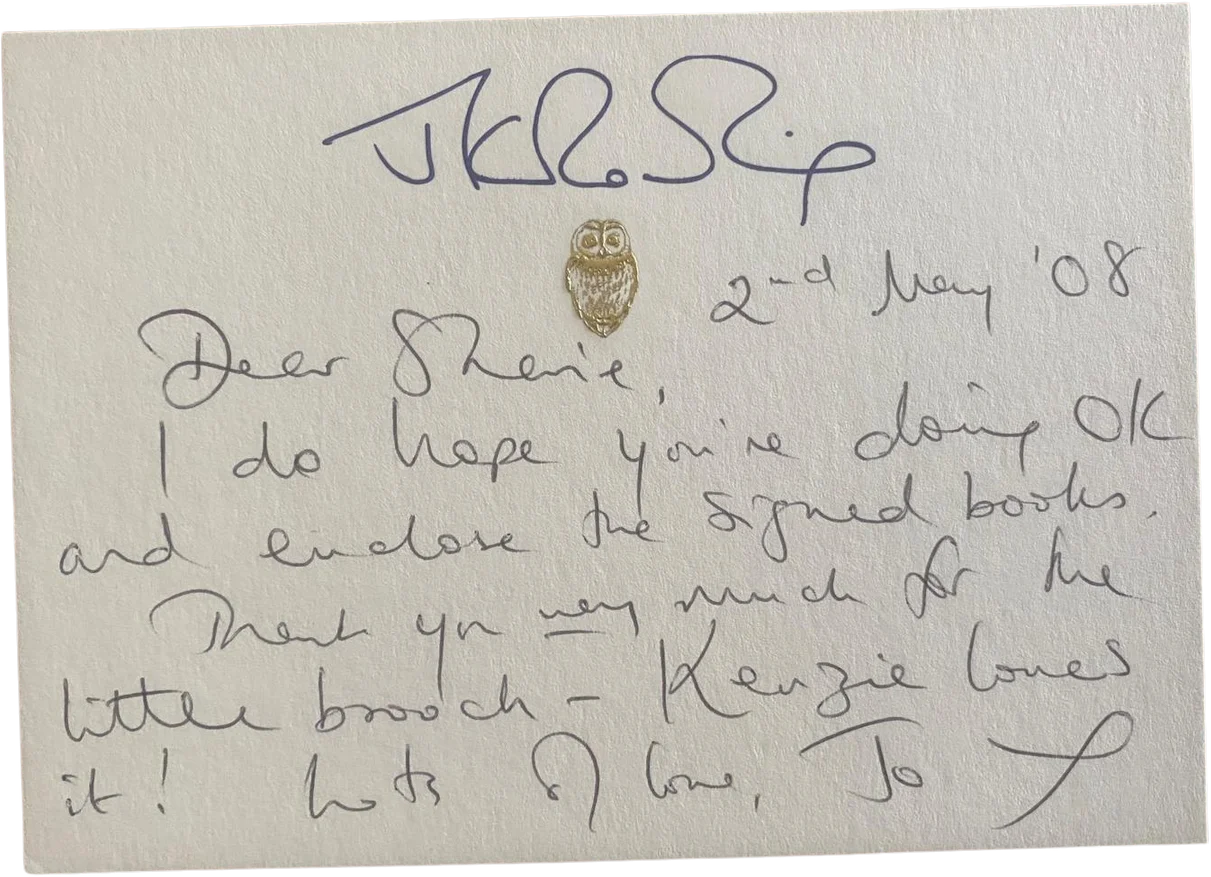 JKRowling
2nd May '08
Dear Sherrie,
I do hope you're doing OK
and enclose the signed books.
Thank you very much for the
little brooch - Kenzie loves
it! Lots of love, Jo x